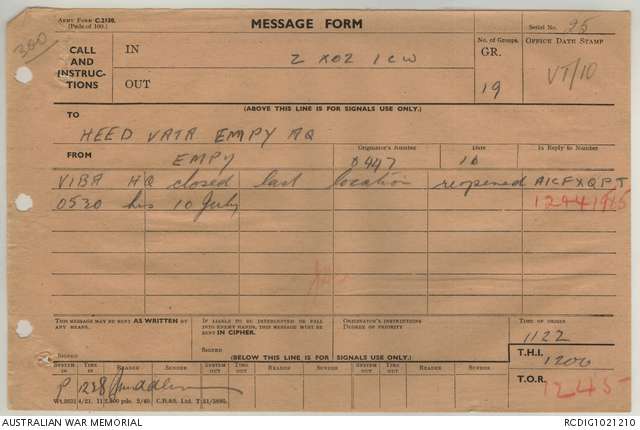 Army Form C.2128.
(Pads of 100.)
MESSAGE FORM
Serial No. 25
300
CALL
AND
INSTRUC-
TIONS
IN
Z XO2 1 CW
OUT
No. of Groups.
GR.
19
Office Date Stamp
VT/10
(ABOVE THIS LINE IS FOR SIGNALS USE ONLY.)
TO
HEED VATA EMPY AQ
FROM
EMPY
Originator's Number
O 947
Date
10
In Reply to Number
VIBA HQ closed last location reopened AICFXQPT
0530 hrs 10 July
This message may be sent AS WRITTEN by
any means.
Signed
If liable to be intercepted or fall
into enemy hands, this message must be
sent IN CIPHER.
Signed
Originator's Instructions
Degree of Priority
Time of Origin
1122
(BELOW THIS LINE IS FOR SIGNALS USE ONLY.)
T.H.I.
1200
System In
Time In
Reader
Sender
System Out
Time Out
Reader
Sender
System Out
Time Out
Reader
Sender
T.O.R.
1245
P 1238
AUSTRALIAN WAR MEMORIAL
RCDIG1021210